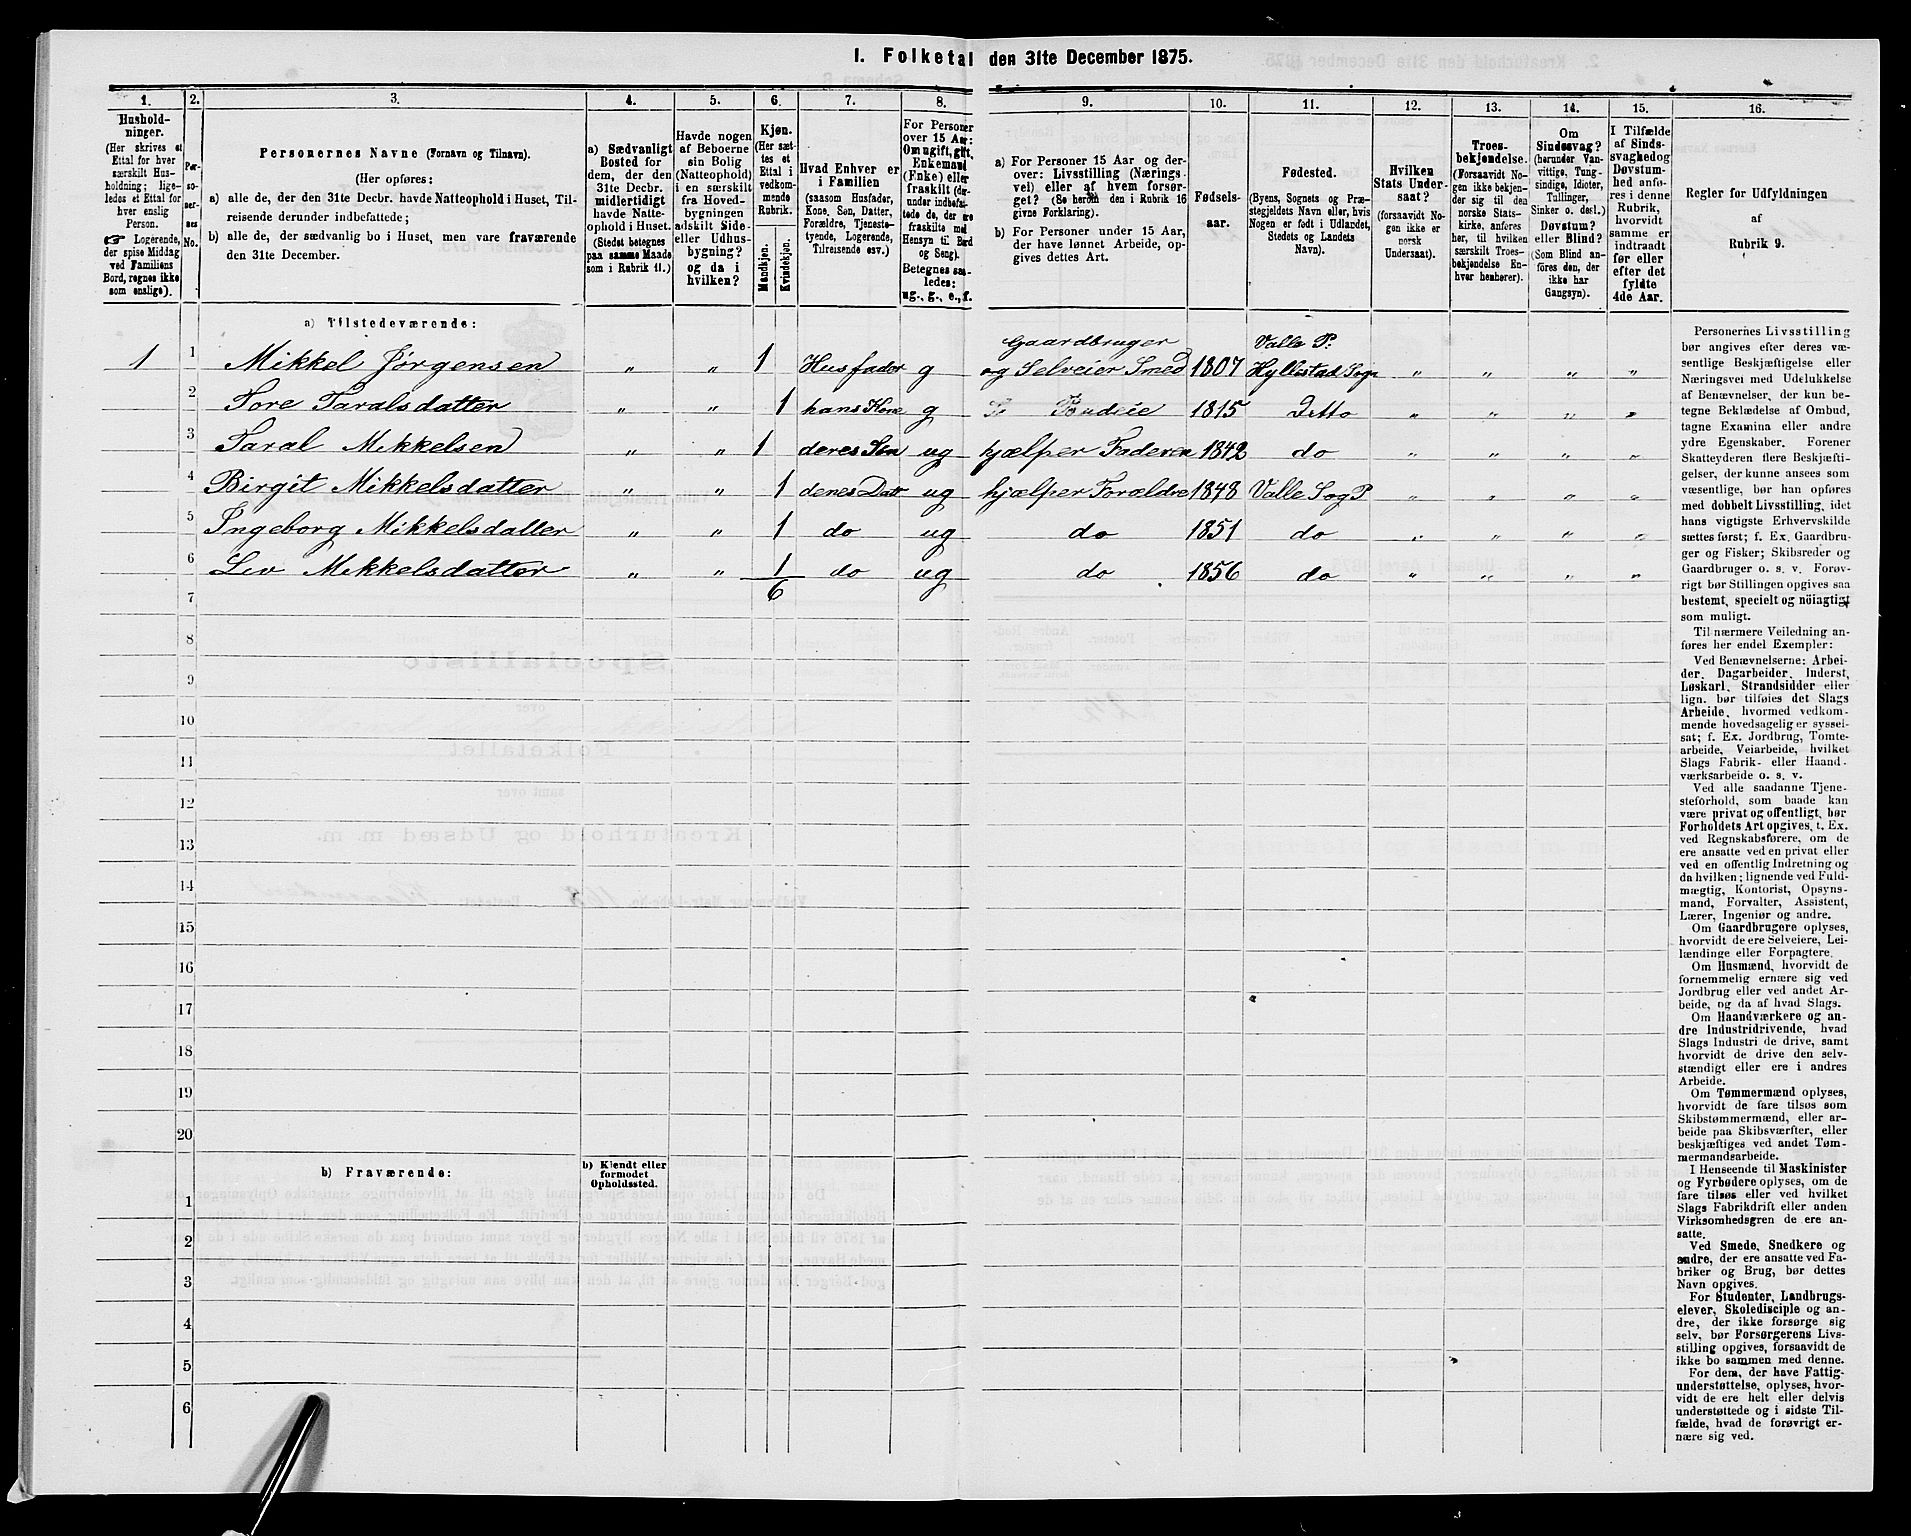 I. Folketal den 31te December 1875.
1. 2. 3. 4. 5. 6. 7. 8. 9. 10. 11. 12. 13. 14. 15. 16.
Hushold-
ninger.
(Her skrives et
Ettal for hver
særskilt Hus-
holdning; lige-
ledes et Ettal for
hver enslig
Person.
☞ Logerende,
der spise Middag
ved Familiens
Bord, regnes ikke
som enslige).
Per-
so-
ner-
nes
No.
Personernes Navne (Fornavn og Tilnavn).
(Her opføres:
a) alle de, der den 31te Decbr. havde Natteophold i Huset, Til-
reisende derunder indbefattede;
b) alle de, der sædvanlig bo i Huset, men vare fraværende
den 31te December.
a) Sædvanligt
Bosted for
dem, der den
31te Decbr.
midlertidigt
havde Natte-
ophold i Huset.
(Stedet betegnes
paa samme Maade
som i Rubrik 11.)
Havde nogen
af Beboerne
sin Bolig
(Natteophold)
i en særskilt
fra Hoved-
bygningen
adskilt Side-
eller Udhus-
bygning?
og da i
hvilken?
Kjøn.
(Her sæt-
tes et
Ettal i
vedkom-
mende
Rubrik.
Mandkjøn.
Kvindekjøn.
Hvad Enhver er
i Familien
(saasom Husfader,
Kone, Søn, Datter,
Forældre, Tjeneste-
tyende, Logerende,
Tilreisende osv.)
For Personer
over 15 Aar:
Om ugift, gift,
Enkemand
(Enke) eller
fraskilt (der-
under indbefat-
tede de, der ere
fraskilte med
Hensyn til Bord
og Seng).
Betegnes saa-
ledes:
ug., g., e., f.
a) For Personer 15 Aar og der-
over: Livsstilling (Nærings-
vei) eller af hvem forsør-
get? (Se herom den i Rubrik 16
givne Forklaring).
b) For Personer under 15 Aar,
der have lønnet Arbeide, op-
gives dettes Art.
Fødsels-
aar.
Fødested.
(Byens, Sognets og Præ-
stegjeldets Navn eller, hvis
Nogen er født i Udlandet,
Stedets og Landets
Navn).
Hvilken
Stats Under-
saat?
(forsaavidt No-
gen ikke er
norsk
Undersaat).
Troes-
bekjendelse.
(Forsaavidt No-
gen ikke bekjen-
der sig til den
norske Stats-
kirke, anføres
her, til hvilken
særskilt Troes-
bekjendelse En-
hver henhører).
Om
Sindssvag?
(herunder Van-
vittige, Tung-
sindige, Idioter,
Tullinger,
Sinker o. desl.)
Døvstum?
eller Blind?
(Som Blind an-
føres den, der
ikke har
Gangsyn).
I Tilfælde
af Sinds-
svaghed og
Døvstum-
hed anfø-
res i denne
Rubrik,
hvorvidt
samme er
indtraadt
før eller
efter det
fyldte
4de Aar.
Regler for Udfyldningen
af
Rubrik 9.
a) Tilstedeværende:
1 1 Mikkel Jørgensen " " 1 Husfader g Gaardbruger og Selveier Smed 1807 Valle P. Hyllestad Sogn " " " "
2 Tore Taralsdatter " " 1 hans Kone g 1815 Ditto " " " "
3 Taral Mikkelsen " " 1 deres Søn ug hjælper Faderen 1842 do " " " "
4 Birgit Mikkelsdatter " " 1 deres Datt ug hjælper Forældre 1848 Valle Sog P. " " " "
5 Ingeborg Mikkelsdatter " " 1 do ug do 1851 do " " " "
6 Liv Mikkelsdatter " " 1 do ug do 1856 do " " " "
6
7
8
9
10
11
12
13
14
15
16
17
18
19
20
b) Fraværende:
b) Kjendt eller
formodet
Opholdssted.
1
2
3
4
5
6
Personernes Livsstilling
bør angives efter deres væ-
sentlige Beskjæftigelse eller
Næringsvei med Udelukkelse
af Benævnelser, der kun be-
tegne Beklædelse af Ombud,
tagne Examina eller andre
ydre Egenskaber. Forener
Skatteyderen flere Beskjæfti-
gelser, der kunne ansees som
væsentlige, bør han opføres
med dobbelt Livsstilling, idet
hans vigtigste Erhvervskilde
sættes først; f. Ex. Gaardbru-
ger og Fisker; Skibsreder og
Gaardbruger o. s. v. Forøv-
rigt bør Stillingen opgives saa
bestemt, specielt og nöiagtigt
som muligt.
Til nærmere Veiledning an-
føres her endel Exempler:
Ved Benævnelserne: Arbei-
der, Dagarbeider, Inderst,
Løskarl, Strandsidder eller
lign. bør tilføies det Slags
Arbeide, hvormed vedkom-
mende hovedsagelig er syssel-
sat; f. Ex. Jordbrug, Tomte-
arbeide, Veiarbeide, hvilket
Slags Fabrik- eller Haand-
værksarbeide o. s. v.
Ved alle saadanne Tjene-
steforhold, som baade kan
være privat og offentligt, bør
Forholdets Art opgives, t. Ex.
ved Regnskabsførere, om de
ere ansatte ved en privat eller
ved en offentlig Indretning og
da hvilken; lignende ved Fuld-
mægtig, Kontorist, Opsyns-
mand, Forvalter, Assistent,
Lærer, Ingeniør og andre.
Om Gaardbrugere oplyses,
hvorvidt de ere Selveiere, Lei-
lændinge eller Forpagtere.
Om Husmænd, hvorvidt de
fornemmelig ernære sig ved
Jordbrug eller ved andet Ar-
beide, og da af hvad Slags.
Om Haandværkere og an-
dre Industridrivende, hvad
Slags Industri de drive, samt
hvorvidt de drive den selv-
stændigt eller ere i andres
Arbeide.
Om Tømmermænd oplyses,
hvorvidt de fare tilsøs som
Skibstømmermænd, eller ar-
beide paa Skibsværfter, eller
beskjæftiges ved andet Tøm-
mermandsarbeide.
I Henseende til Maskinister
og Fyrbødere oplyses, om de
fare tilsøs eller ved hvilket
Slags Fabrikdrift eller anden
Virksomhedsgren de ere an-
satte.
Ved Smede, Snedkere og
andre, der ere ansatte ved Fa-
briker og Brug, bør dettes
Navn opgives.
For Studenter, Landbrugs-
elever, Skoledisciple og an-
dre, der ikke forsørge sig
selv, bør Forsørgerens Livs-
stilling opgives, forsaavidt de
ikke bo sammen med denne.
For dem, der have Fattig-
understøttelse, oplyses, hvor-
vidt de ere helt eller delvis
understøttede og i sidste Til-
fælde, hvad de forøvrigt er-
nære sig ved.